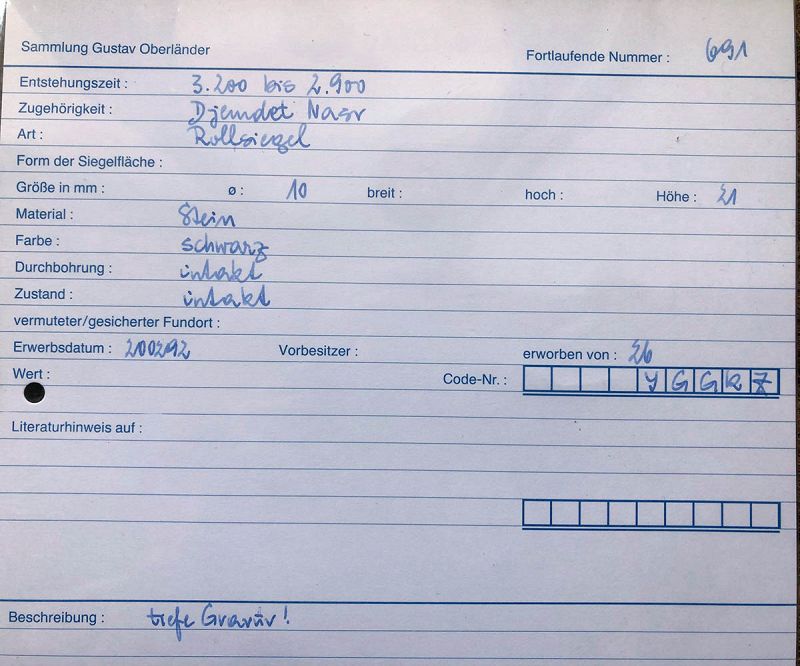 Sammlung Gustav Oberländer
Fortlaufende Nummer : 691
Entstehungszeit : 3.200 bis 2.900
Zugehörigkeit : Djemdet Nasr
Art : Rollsiegel
Form der Siegelfläche :
Größe in mm : ø : 10 breit : hoch : Höhe : 21
Material : Stein
Farbe : schwarz
Durchbohrung : intakt
Zustand : intakt
vermuteter/gesicherter Fundort :
Erwerbsdatum : 200292 Vorbesitzer : erworben von : 26
Wert : Code-Nr. : Y G G K Z
Literaturhinweis auf :
Beschreibung : tiefe Gravur !